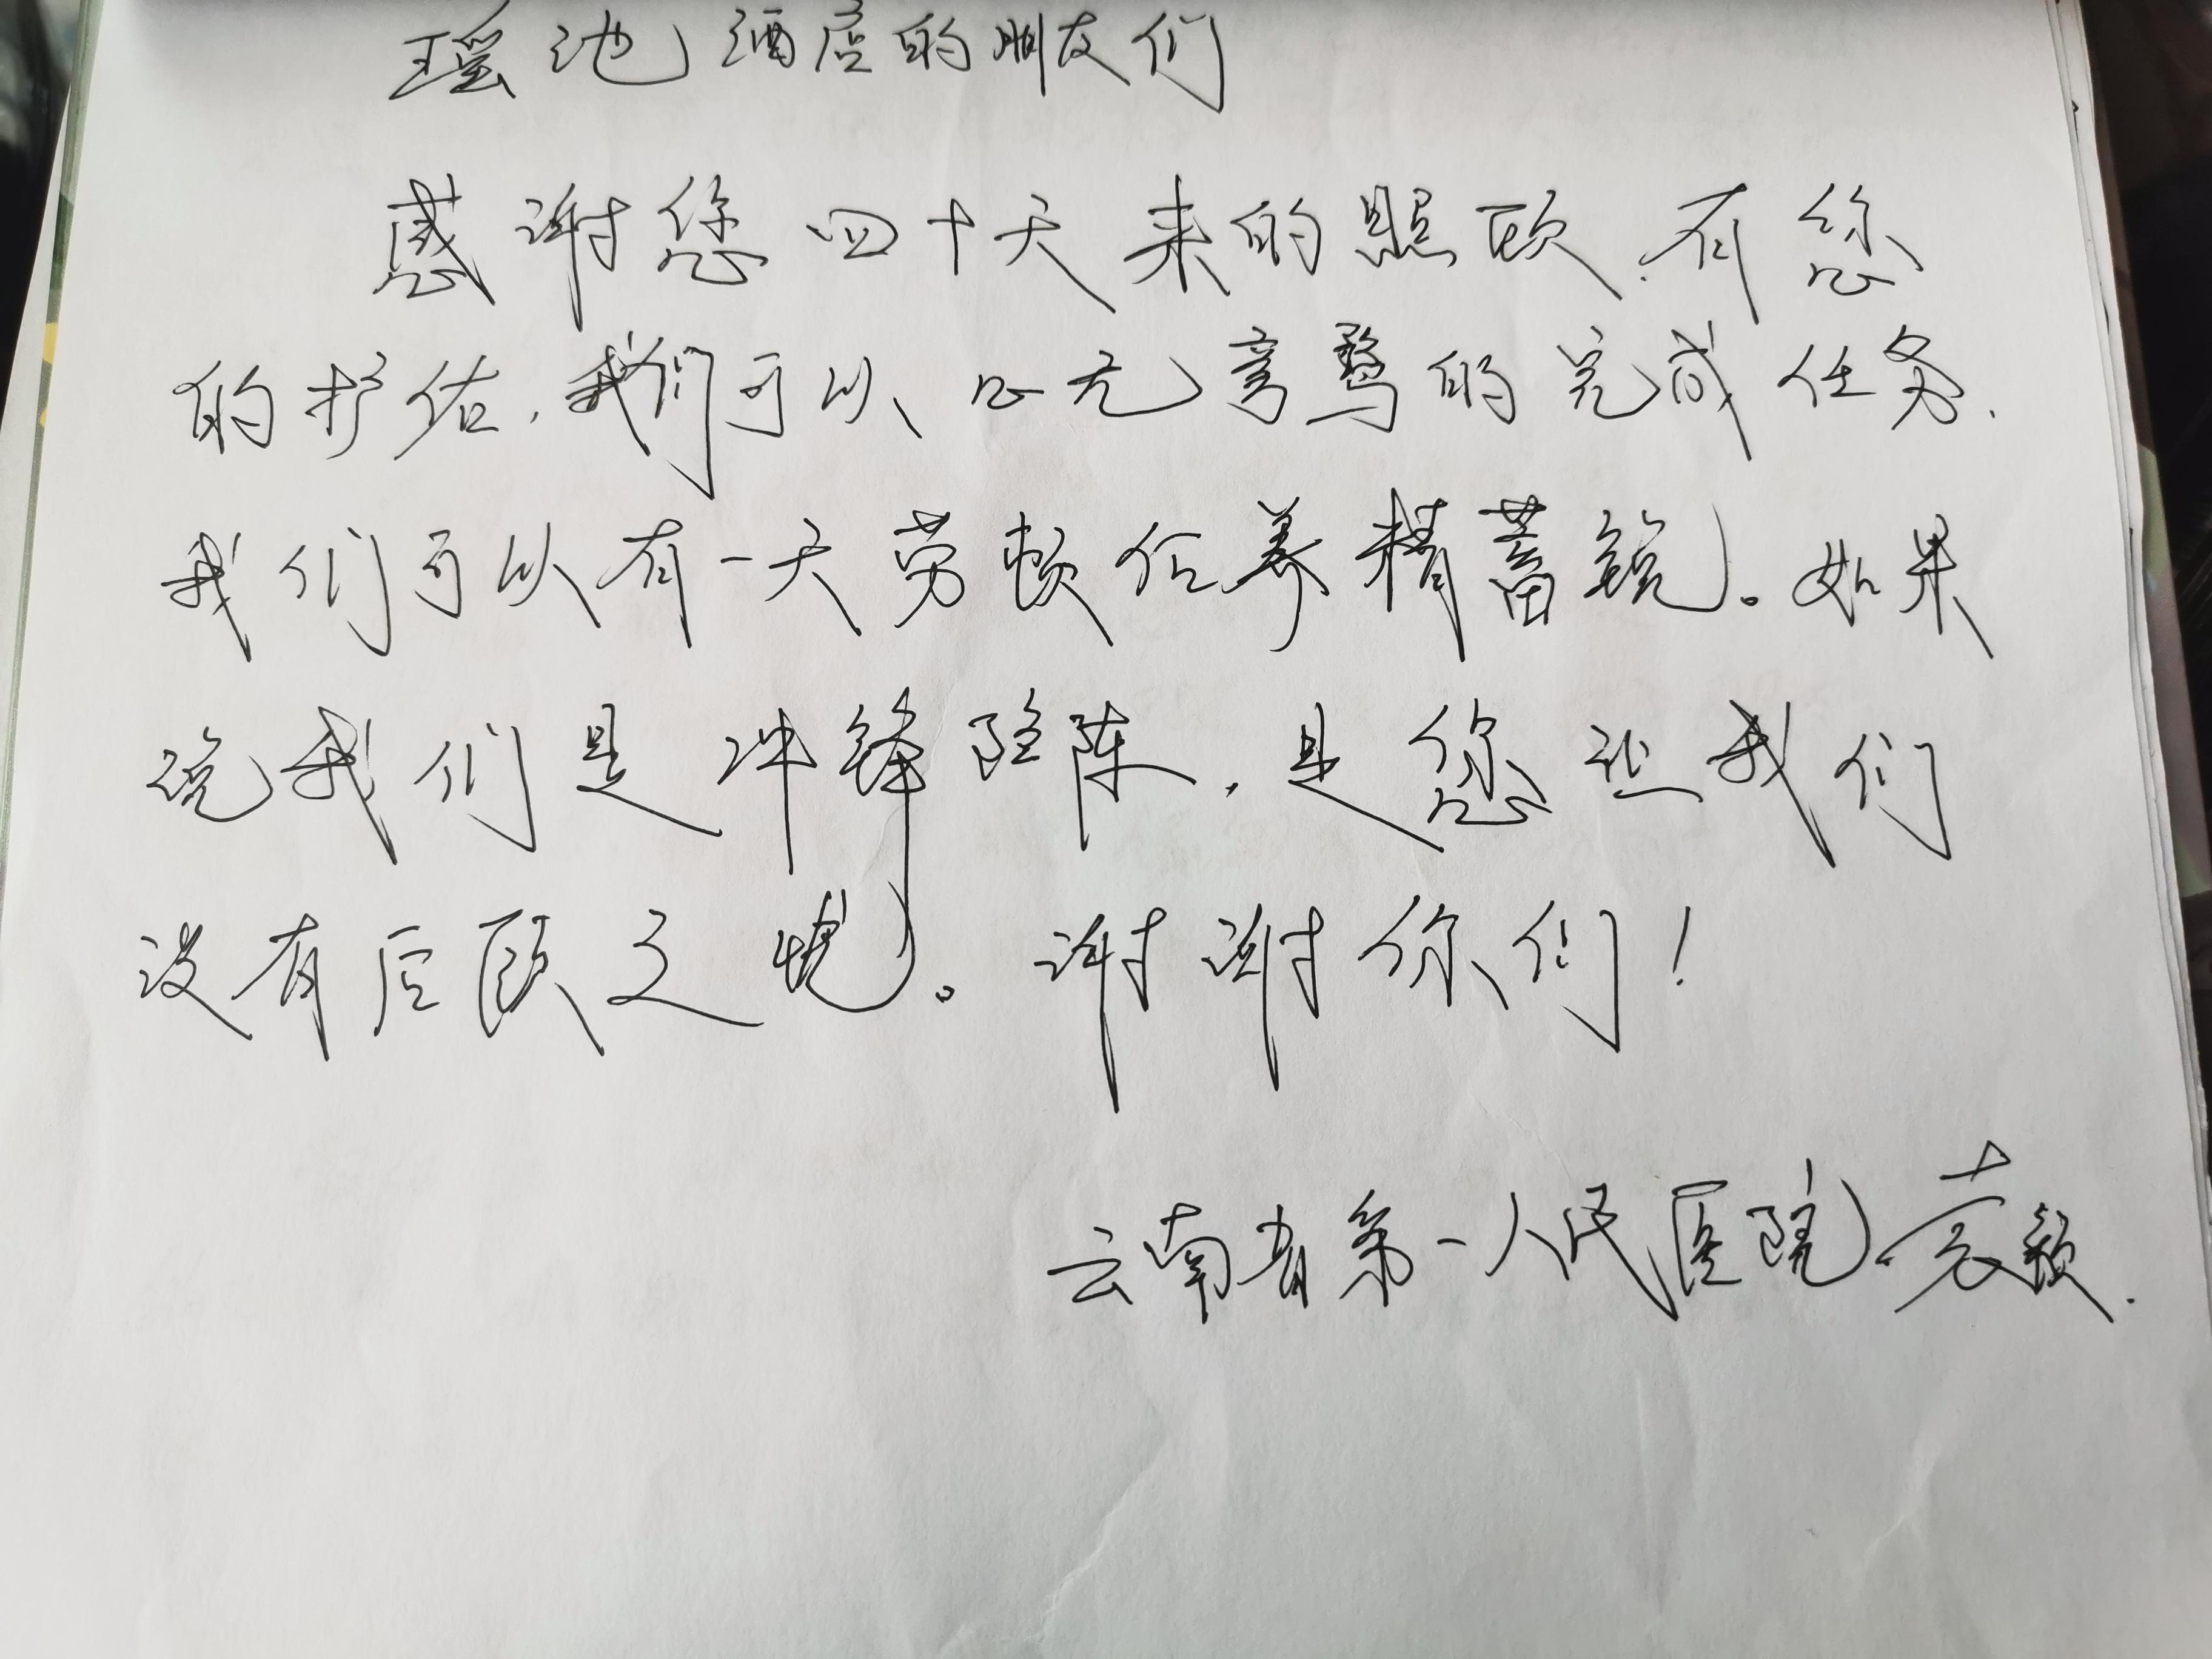 瑶池酒店的朋友们
感谢您四十天来的照顾,有您
的护佑,我们可以心无旁骛的完成任务.
我们可以有一天劳顿后养精蓄锐。如果
说我们是冲锋陷阵,是您让我们
没有后顾之忧。谢谢你们!
云南省第一人民医院